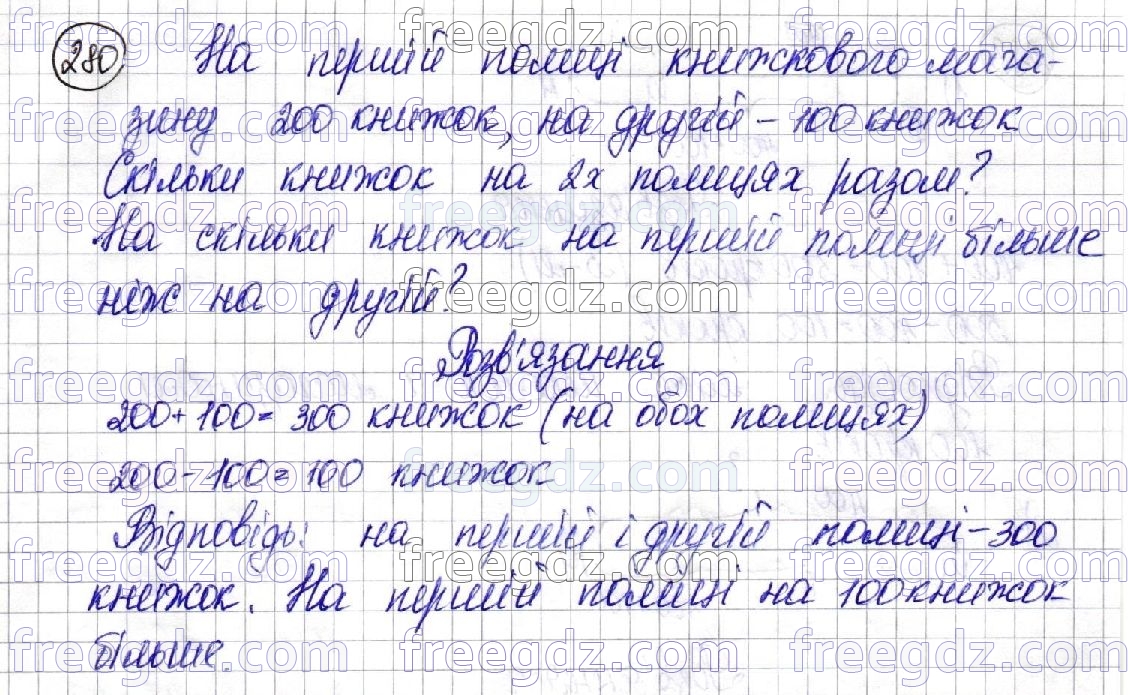 280 На першій полиці книжкового мага-
зину 200 книжок, на другій – 100 книжок
Скільки книжок на 2х полицях разом?
На скільки книжок на першій полиці більше
ніж на другій?
Розв'язання
200 + 100 = 300 книжок (на обох полицях)
200 – 100 = 100 книжок
Відповідь: на першій і другій полиці – 300
книжок. На першій полиці на 100 книжок
більше.
freegdz.com